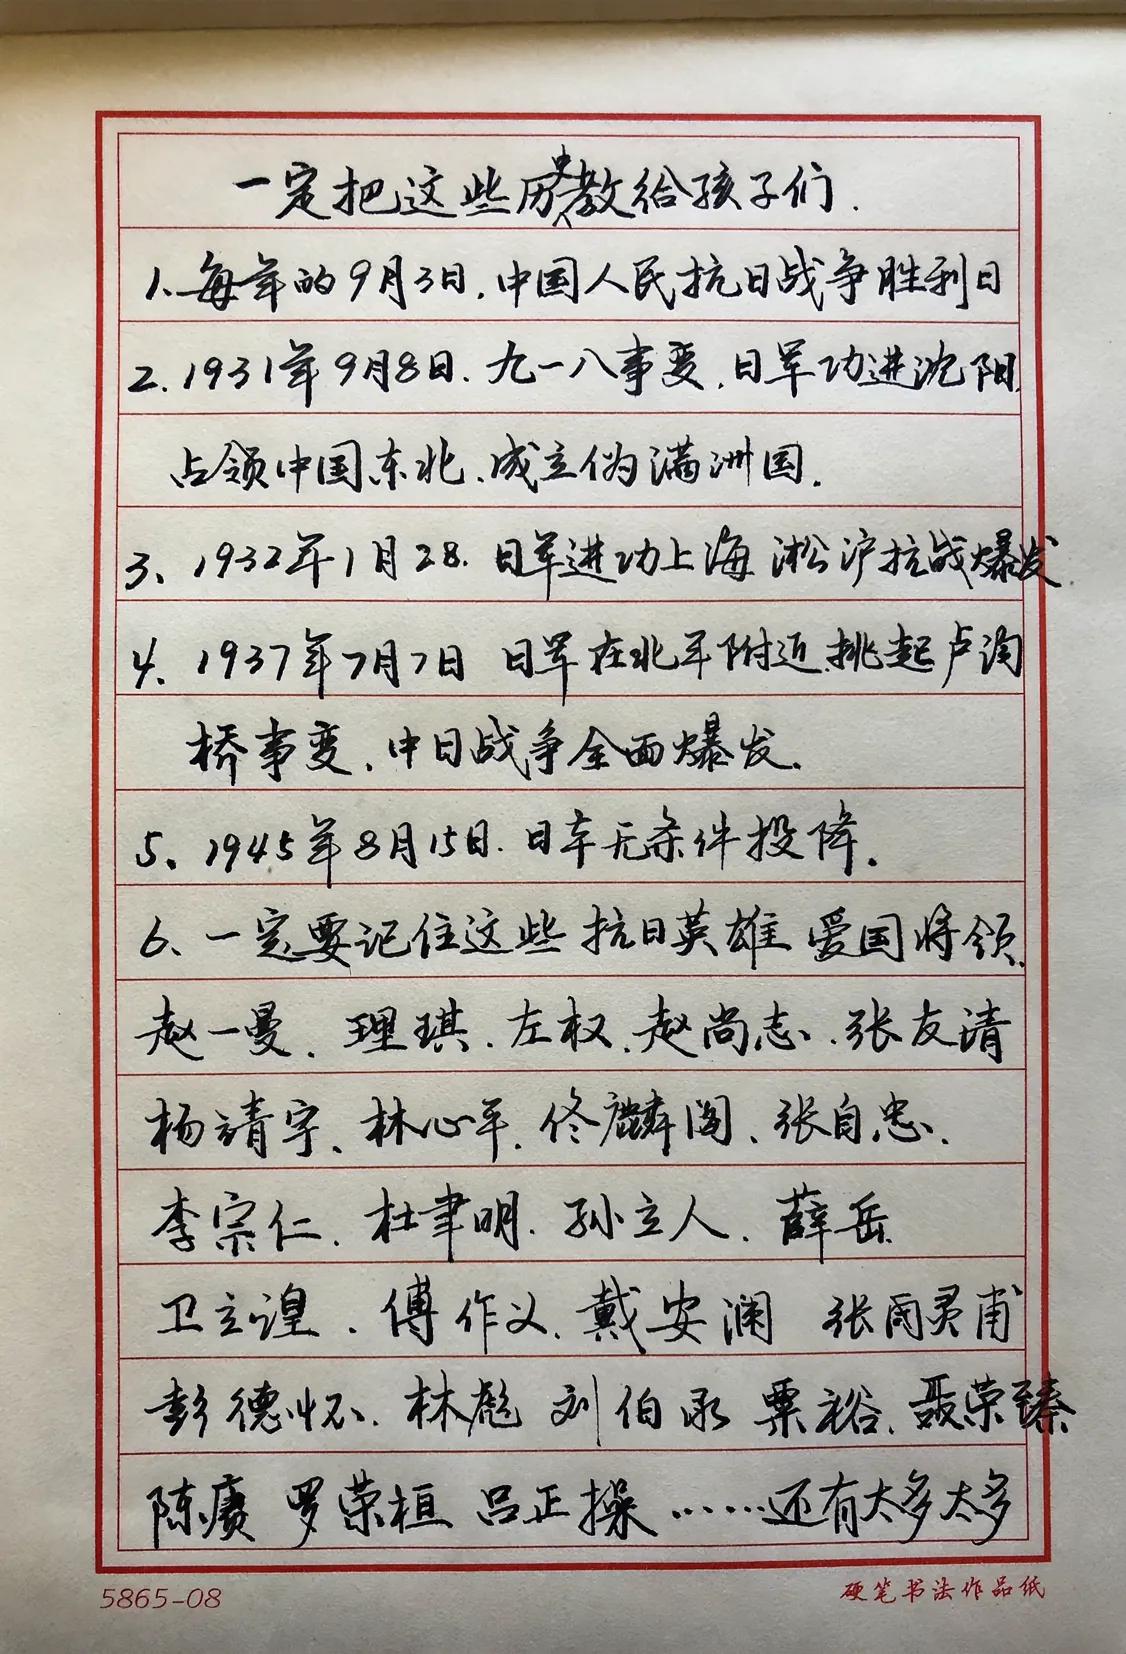 一定把这些历史教给孩子们.
1.每年的9月3日.中国人民抗日战争胜利日
2.1931年9月8日.九一八事变.日军功进沈阳.
占领中国东北、成立伪满洲国.
3、1932年1月28.日军进功上海 淞沪抗战爆发
4、1937年7月7日 日军在北平附近挑起卢沟
桥事变.中日战争全面爆发.
5、1945年8月15日.日车无条件投降.
6、一定要记住这些抗日英雄 爱国将领.
赵一曼.理琪.左权.赵尚志.张友清
杨靖宇、林心平.佟麟阁.张自忠.
李宗仁.杜聿明.孙立人.薛岳
卫立煌.傅作义.戴安澜 张雨灵甫
彭德怀.林彪 刘伯承 粟裕.聂荣臻
陈赓 罗荣桓 吕正操……还有太多太多
5865-08
硬笔书法作品纸